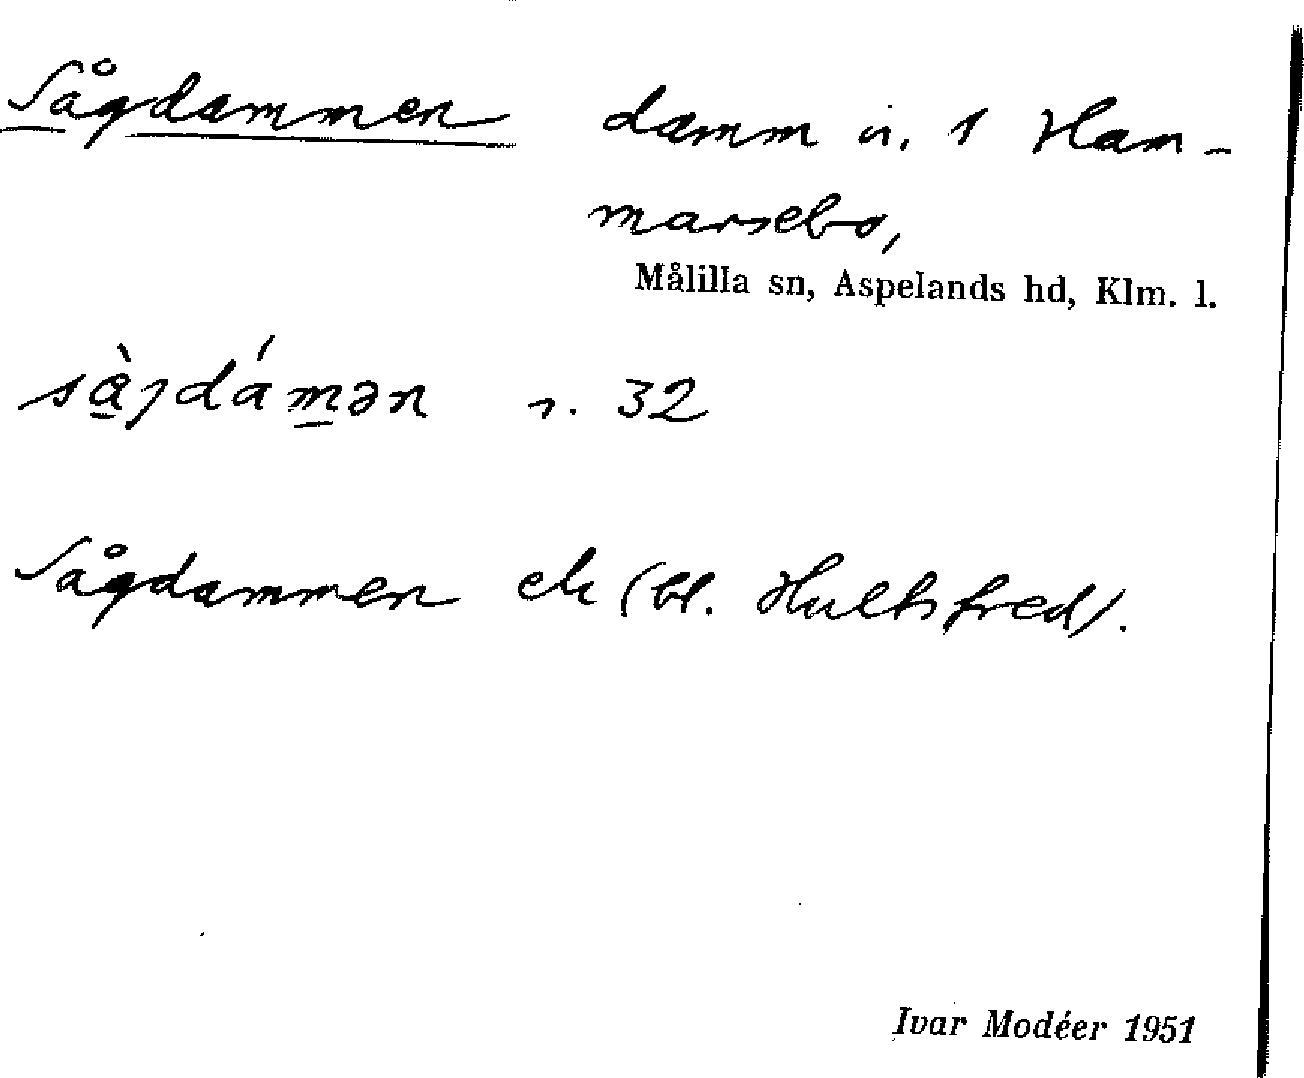 Sågdammen damm n. 1 Ham-
marsebo,
Målilla sn, Aspelands hd, Klm. l.
sàjdámən s. 32
Sågdammen ek (bl. Hultsfred).
Ivar Modéer 1951